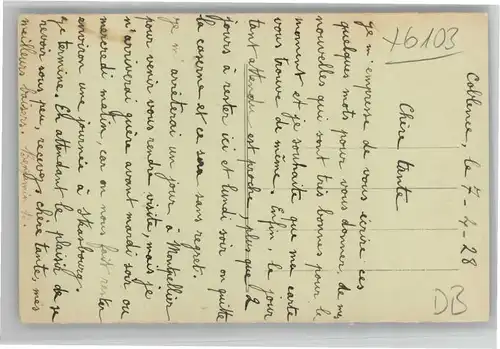 x6103
Coblence, le 7-4-28
Chère tante
Je m'empresse de vous écrire ces
quelques mots pour vous donner, de mes
nouvelles qui sont très bonnes pour le
moment et je souhaite que ma carte
vous trouve de même. Enfin, le jour
tant attendu est proche, plus que 2
jours à rester ici et lundi soir on quitte
la caserne et ce sera sans regret.
Je m'arrêterai un jour, à Montpellier
pour venir vous rendre visite, mais je
n'arriverai guère avant mardi soir ou
mercredi matin, car on nous fait rester
environ une journée à Strasbourg.
Je termine. En attendant le plaisir de
revoir sous peu, recevez chère tante, mes
meilleurs baisers.
DB